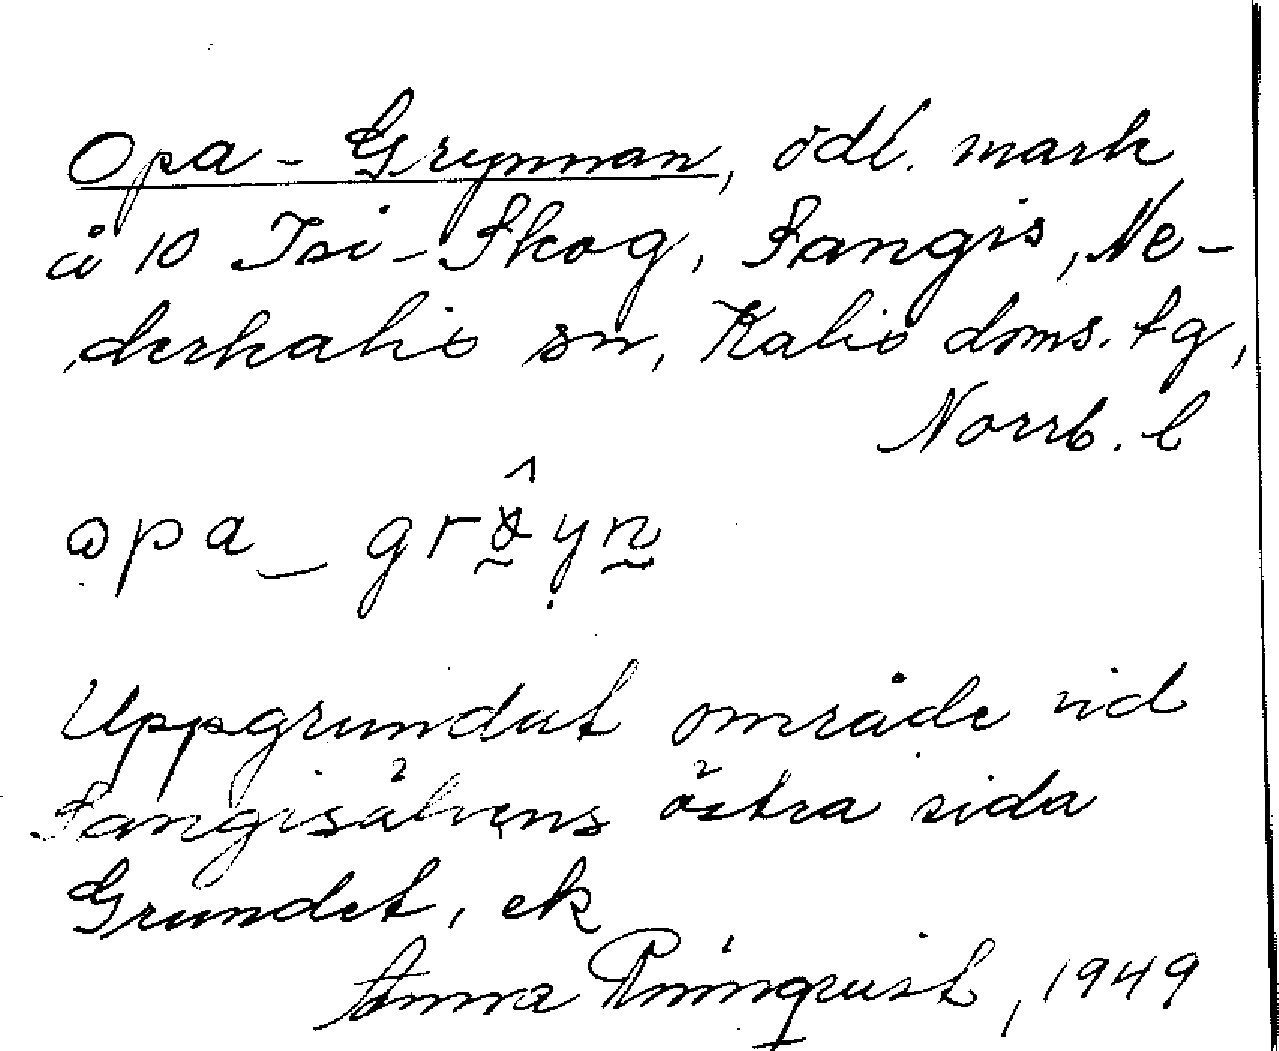 Opa-Grynnan, ödl. mark
å 10 Isi-Skog, Sangis, Ne-
derkalix sn, Kalix doms. tg,
Norrb. l
opa_
Uppgrundat område vid
Sangisälvens östra sida
Grundet, ek
Anna Rönnqvist, 1949